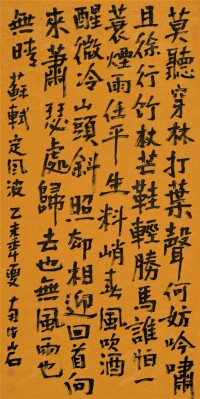 莫聽穿林打葉聲何妨吟嘯
且徐行竹杖芒鞋輕勝馬誰怕一
蓑煙雨任平生料峭春風吹酒
醒微冷山頭斜照却相迎回首向
來蕭瑟處歸去也無風雨也
無晴 蘇軾定風波 乙未年夏